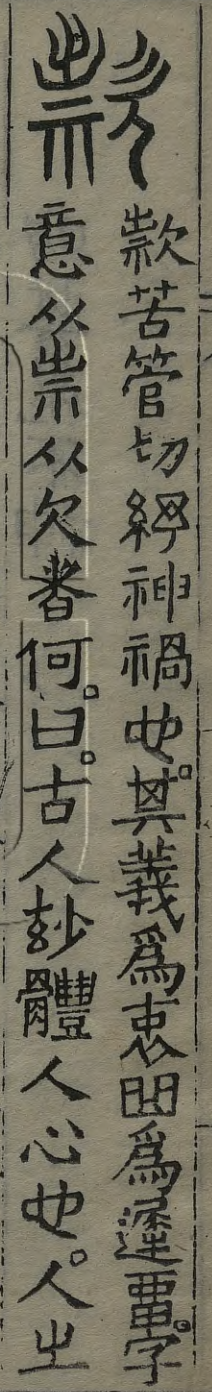 款
款苦管切神禍也。其義爲衷曲爲遲畱。字
意从祟从欠者何。曰。古人玅體人心也。人之